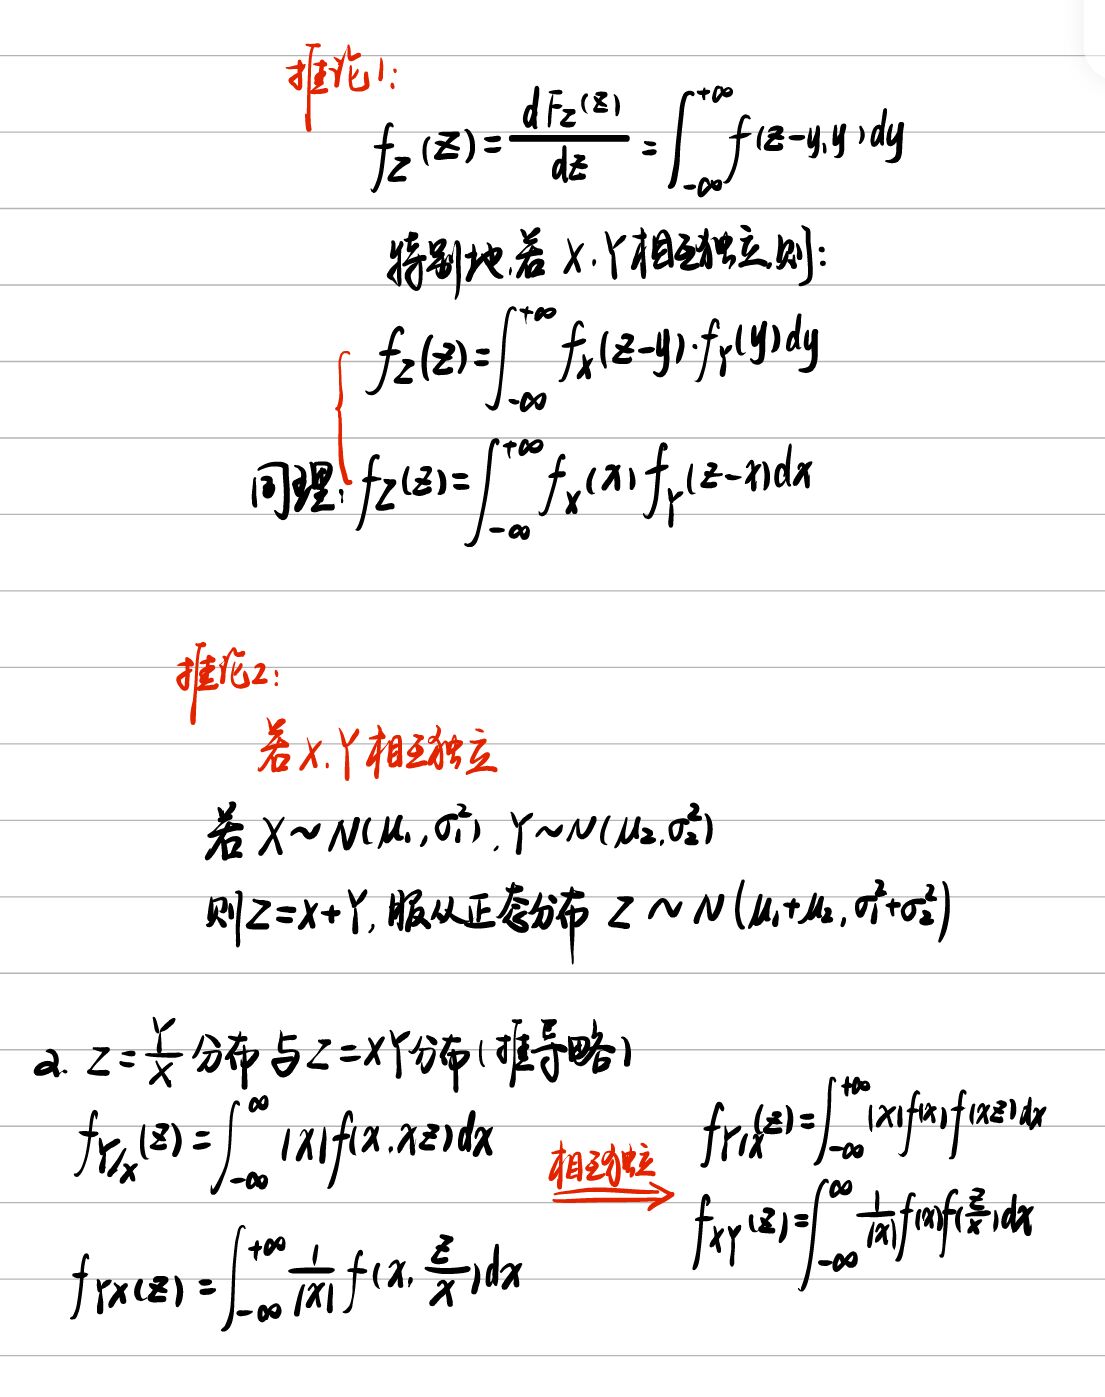 推论1:
f_Z(z)=dF_Z(z)/dz=∫_{-∞}^{+∞}f(z-y,y)dy
特别地,若X,Y相互独立,则:
f_Z(z)=∫_{-∞}^{+∞}f_X(z-y)·f_Y(y)dy
同理:f_Z(z)=∫_{-∞}^{+∞}f_X(x)f_Y(z-x)dx
推论2:
若X,Y相互独立
若X~N(μ₁,σ₁²),Y~N(μ₂,σ₂²)
则Z=X+Y,服从正态分布 Z~N(μ₁+μ₂,σ₁²+σ₂²)
2. Z=Y/X分布与Z=XY分布(推导略)
f_{Y/X}(z)=∫_{-∞}^{∞}|x|f(x,xz)dx
相互独立
f_{Y/X}(z)=∫_{-∞}^{+∞}|x|f(x)f(xz)dx
f_{YX}(z)=∫_{-∞}^{+∞}1/|x| f(x,z/x)dx
f_{XY}(z)=∫_{-∞}^{∞}1/|x| f(x)f(z/x)dx